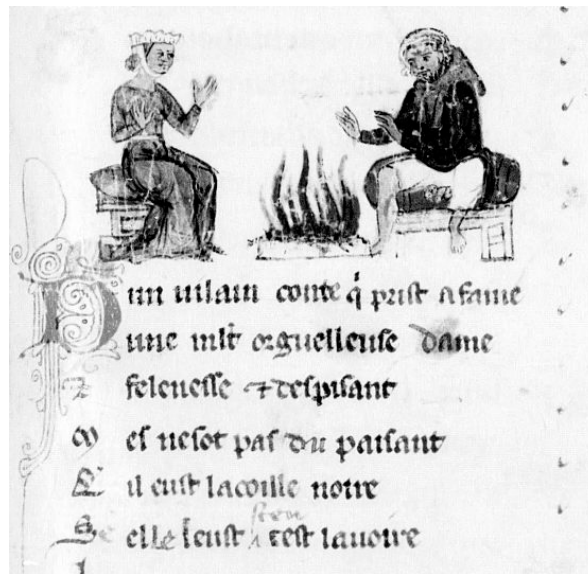 Dun uilain conte q̍ prist a fame
une ml̃t orguelleuse dame
⁊ felenesse ⁊ despisant
M es nesot pas du paisant
il eust lacoille noire
Se elle leust seu cest lauoire